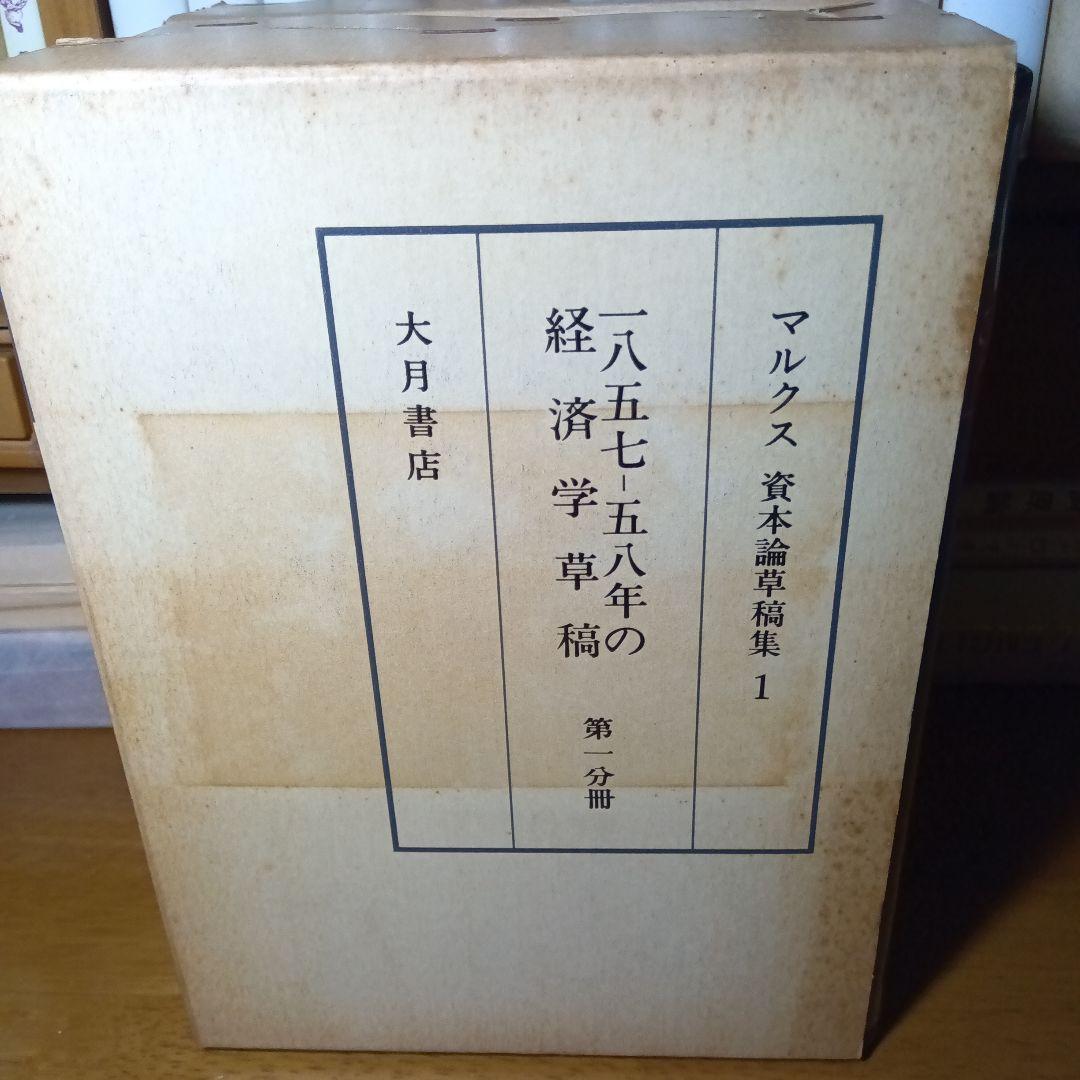 マルクス 資本論草稿集 1
一八五七-五八年の
経済学草稿
第一分冊
大月書店